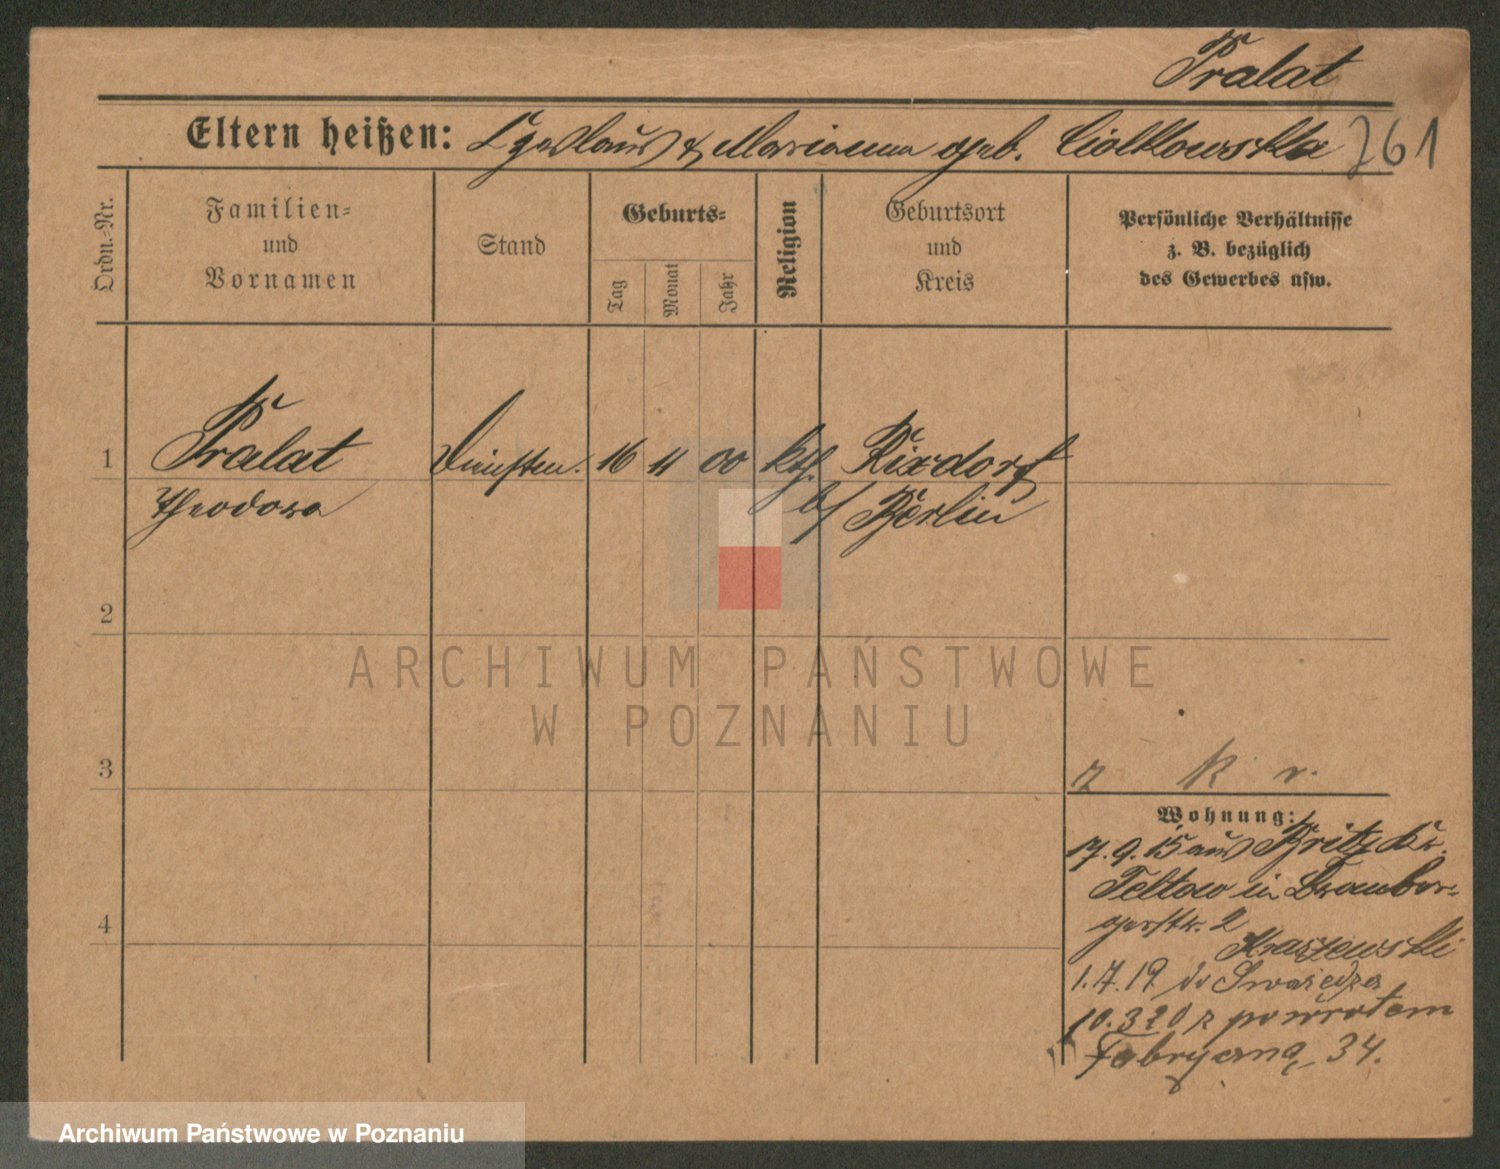 Pralat
Eltern heißen: & Marianna geb. Ciolkowska 761
Ordn.-Nr.
Familien-
und
Vornamen
Stand
Geburts-
Tag
Monat
Jahr
Religion
Geburtsort
und
Kreis
Persönliche Verhältnisse
z. B. bezüglich
des Gewerbes usw.
1 Pralat 16 11 00 kth. Rixdorf
Theodora b/ Berlin
2
3
z k r.
Wohnung:
17.9.15 aus Britz Kr.
Teltow in Bromber-
gerstr. 2
Kraszewski
4
1.7.19 do Swarzędza
10.3 20 z powrotem
Fabryczna 34.
ARCHIWUM PAŃSTWOWE
W POZNANIU
Archiwum Państwowe w Poznaniu